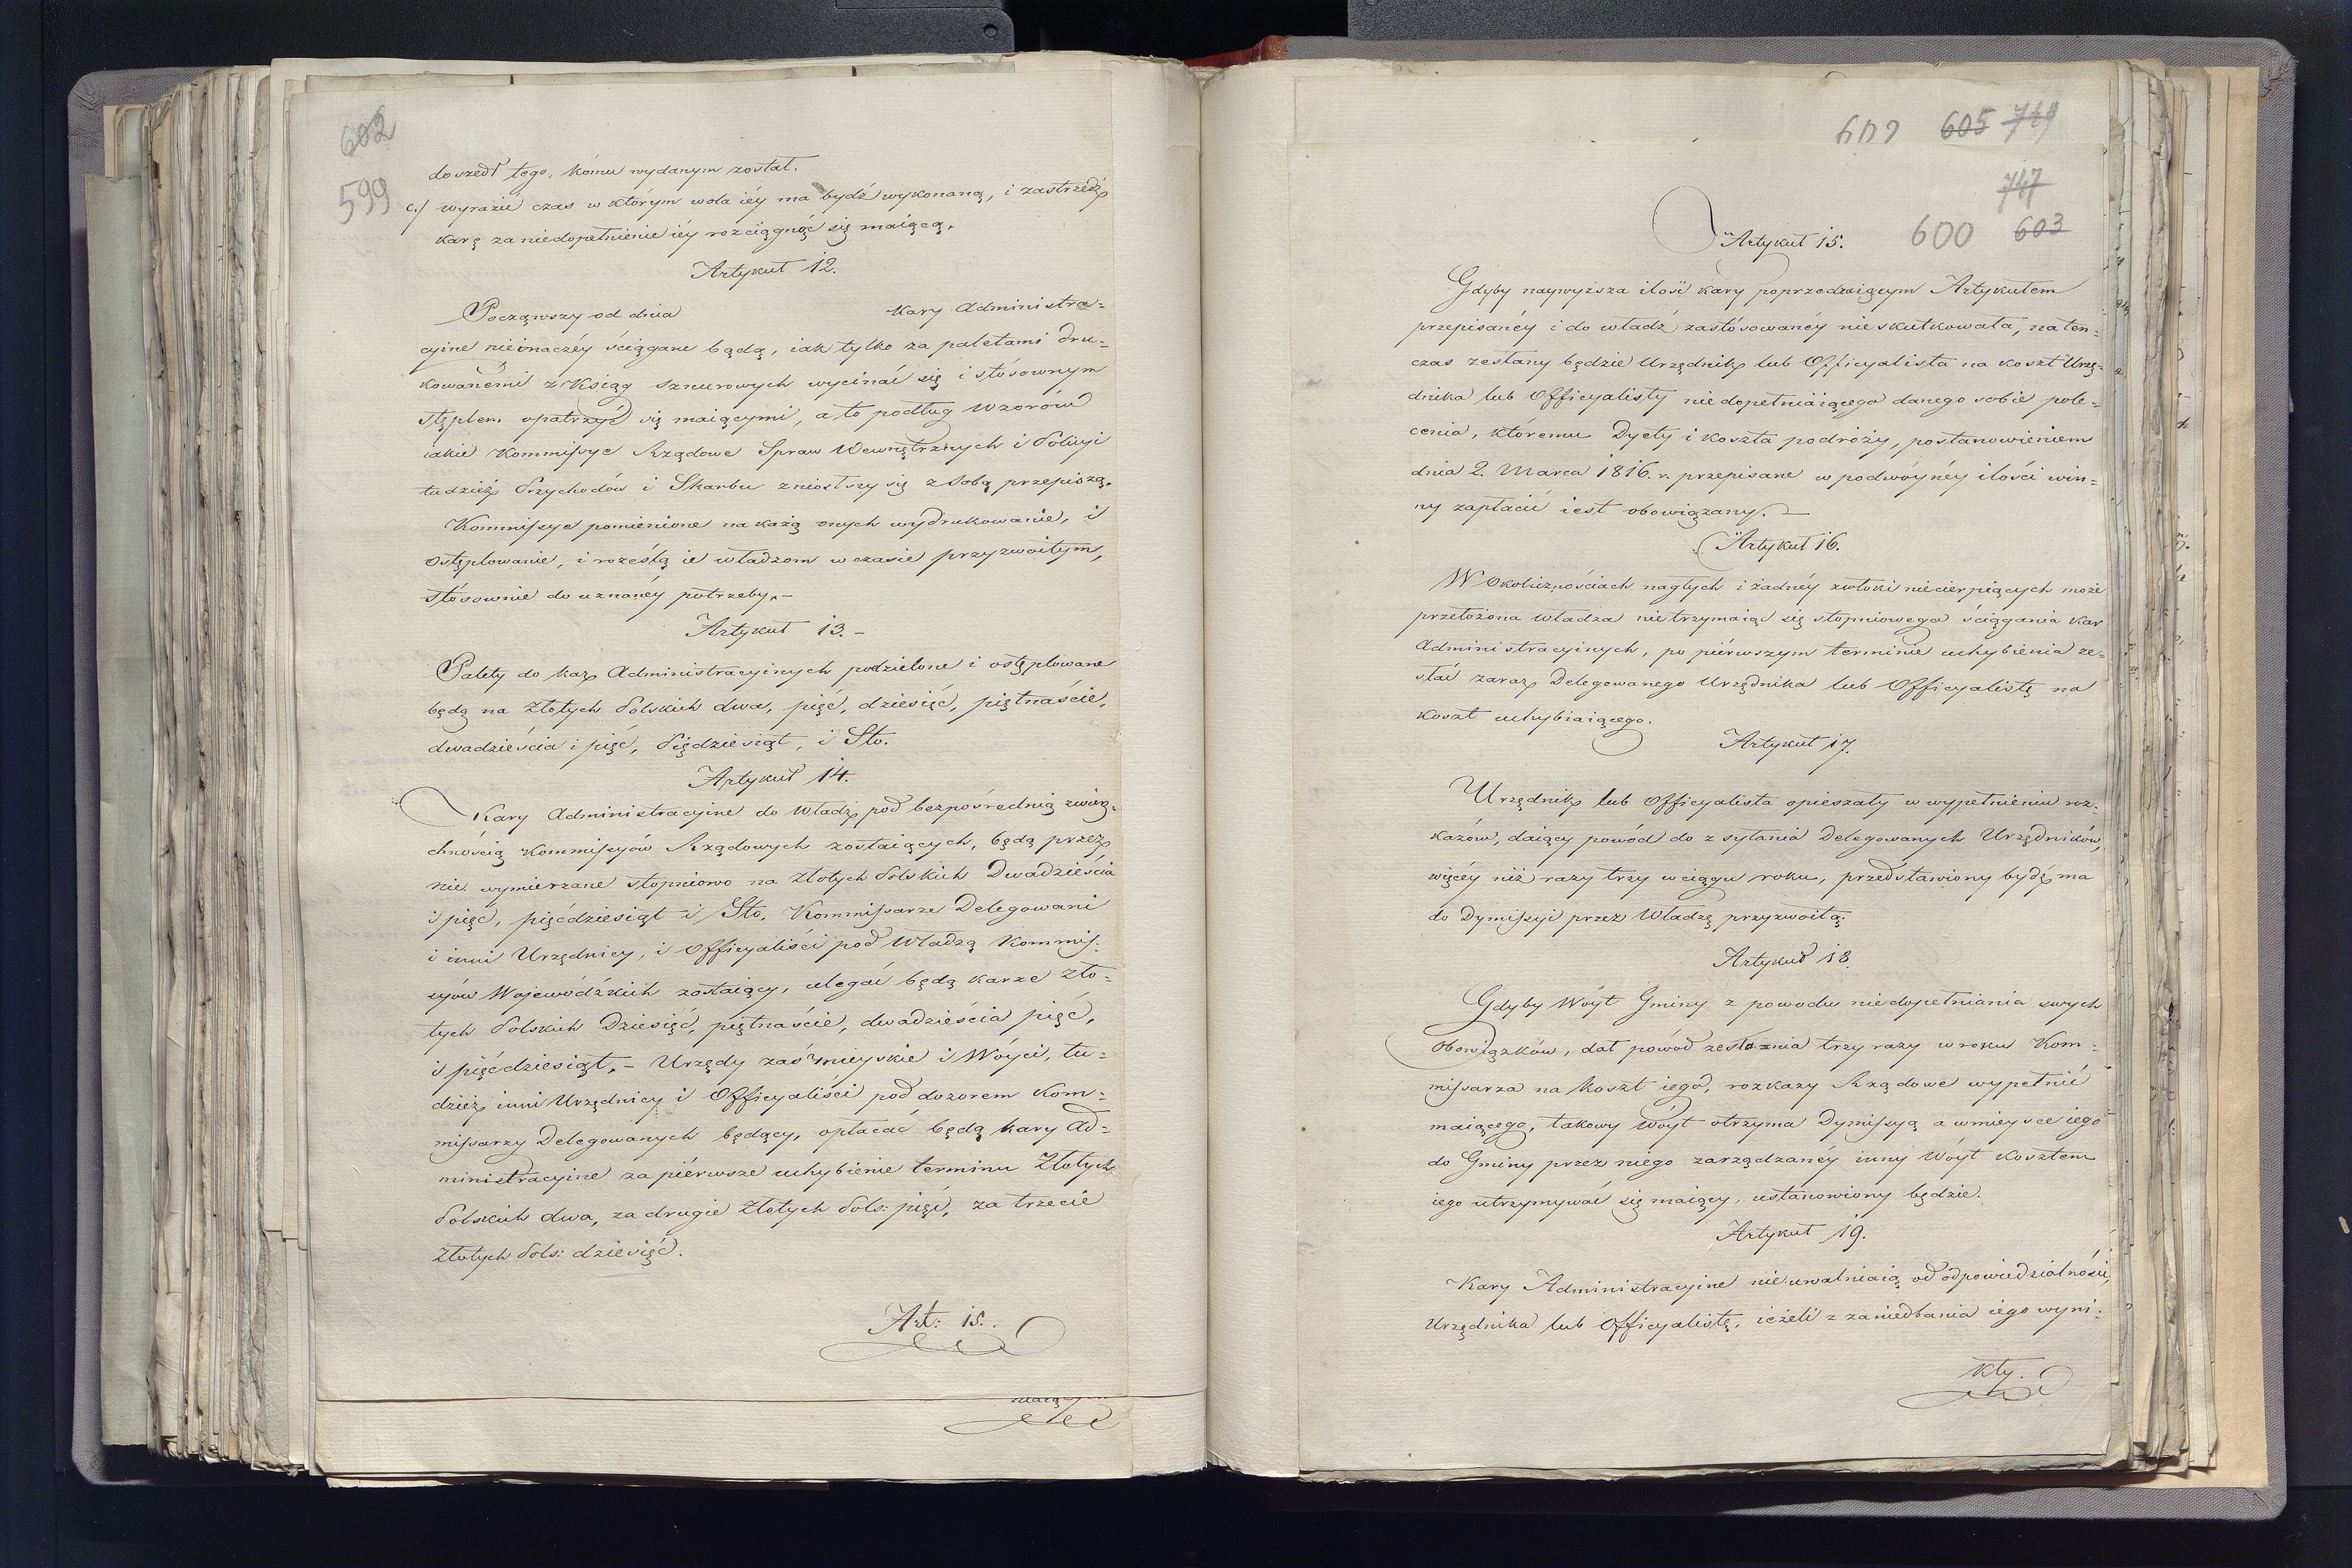 602
599
doszedł tego, kómu wydanym został.
c./ wyrazić czas w którym wola iéy ma bydź wykonaną, i zastrzedz
karę za niedopełnienie iéy rozciągnąć się maiącą.
Artykuł 12.
Począwszy od dnia kary Administra=
cyine nieinaczéy ściągane będą, iak tylko za paletami dru=
kowanemi z Xsiąg sznurowych wycinać się i stósownym
stęplem opatrzyć się maiącymi, a to podług wzorów
iakie Kommissye Rządowe Spraw Wewnętrznych i Policyi
tudzież Przychodów i Skarbu zniosłszy się z sobą przepiszą.
Kommissye pomienione nakażą onych wydrukowanie, i
ostęplowanie, i roześlą ie władzom w czasie przyzwoitym,
stósownie do uznanéy potrzeby.–
Artykuł 13.–
Palety do kar Administracyinych podzielone i ostęplowane
będą na złotych Polskich dwa, pięć, dziesięć, piętnaście,
dwadzieścia i pięć, Piędziesiąt, i Sto.
Artykuł 14.
Kary Administracyine do Władz pod bezpośrednią zwierz=
chnością Kommissyów Rządowych zostaiących, będą przez
nie wymierzane stopniowo na złotych Polskich Dwadzieścia
i pięć, pięćdziesiąt i Sto. Kommissarze Delegowani
i inni Urzędnicy, i Officyaliści pod Władzą Kommis=
syów Wojewódzkich zostaiący, ulegać będą karze zło=
tych Polskich Dziesięć, piętnaście, dwadzieścia pięć,
i pięćdziesiąt.– Urzędy zaś mieyskie i Wóyci, tu=
dzież inni Urzędnicy i Officyaliści pod dozorem Kom=
missarzy Delegowanych będący, opłacać będą kary Ad=
ministracyine za piérwsze uchybienie terminu Złotych
Polskich dwa, za drugie Złotych Pols: pięć, za trzecie
Złotych Pols: dziesięć.
Art: 15.
609 605 749
747
600 603
Artykuł 15.
Gdyby naywyższa ilość kary poprzedzaiącym Artykułem
przepisanéy i do władz zastósowanéy nie skutkowała, naten=
czas zesłany będzie Urzędnik lub Officyalista na koszt Urzę=
dnika lub Officyalisty niedopełniaiącego danego sobie pole=
cenia, któremu Dyety i koszta podróży, postanowieniem
dnia 2. Marca 1816. r. przepisane w podwóynéy ilości win=
ny zapłacić iest obowiązany. –
Artykuł 16.
W Okolicznościach nagłych i żadnéy zwłoki niecierpiących może
przełożona władza nietrzymaiąc się stopniowego ściągania kar
Administracyinych, po piérwszym terminie uchybienia ze=
słać zaraz Delegowanego Urzędnika lub Officyalistę na
koszt uchybiaiącego.
Artykuł 17.
Urzędnik lub Officyalista opieszały w wypełnieniu roz=
kazów, daiący powód do zsyłania Delegowanych Urzędników,
więcéy niż razy trzy w ciągu roku, przedstawiony bydź ma
do Dymissyi przez Władzę przyzwoitą.
Artykuł 18.
Gdyby Wóyt Gminy z powodu niedopełniania swych
obowiązków, dał powód zesłania trzy razy w roku Kom=
missarza na koszt iego, rozkazy Rządowe wypełnić
maiącego, takowy Wóyt otrzyma Dymissyą a w mieysce iego
do Gminy przez niego zarządzanéy inny Wóyt kosztem
iego utrzymywać się maiący, ustanowiony będzie.
Artykuł 19.
Kary Administracyine nieuwalniaią od odpowiedzialności,
Urzędnika lub Officyalistę, ieżeli z zaniedbania iego wyni=
kły.